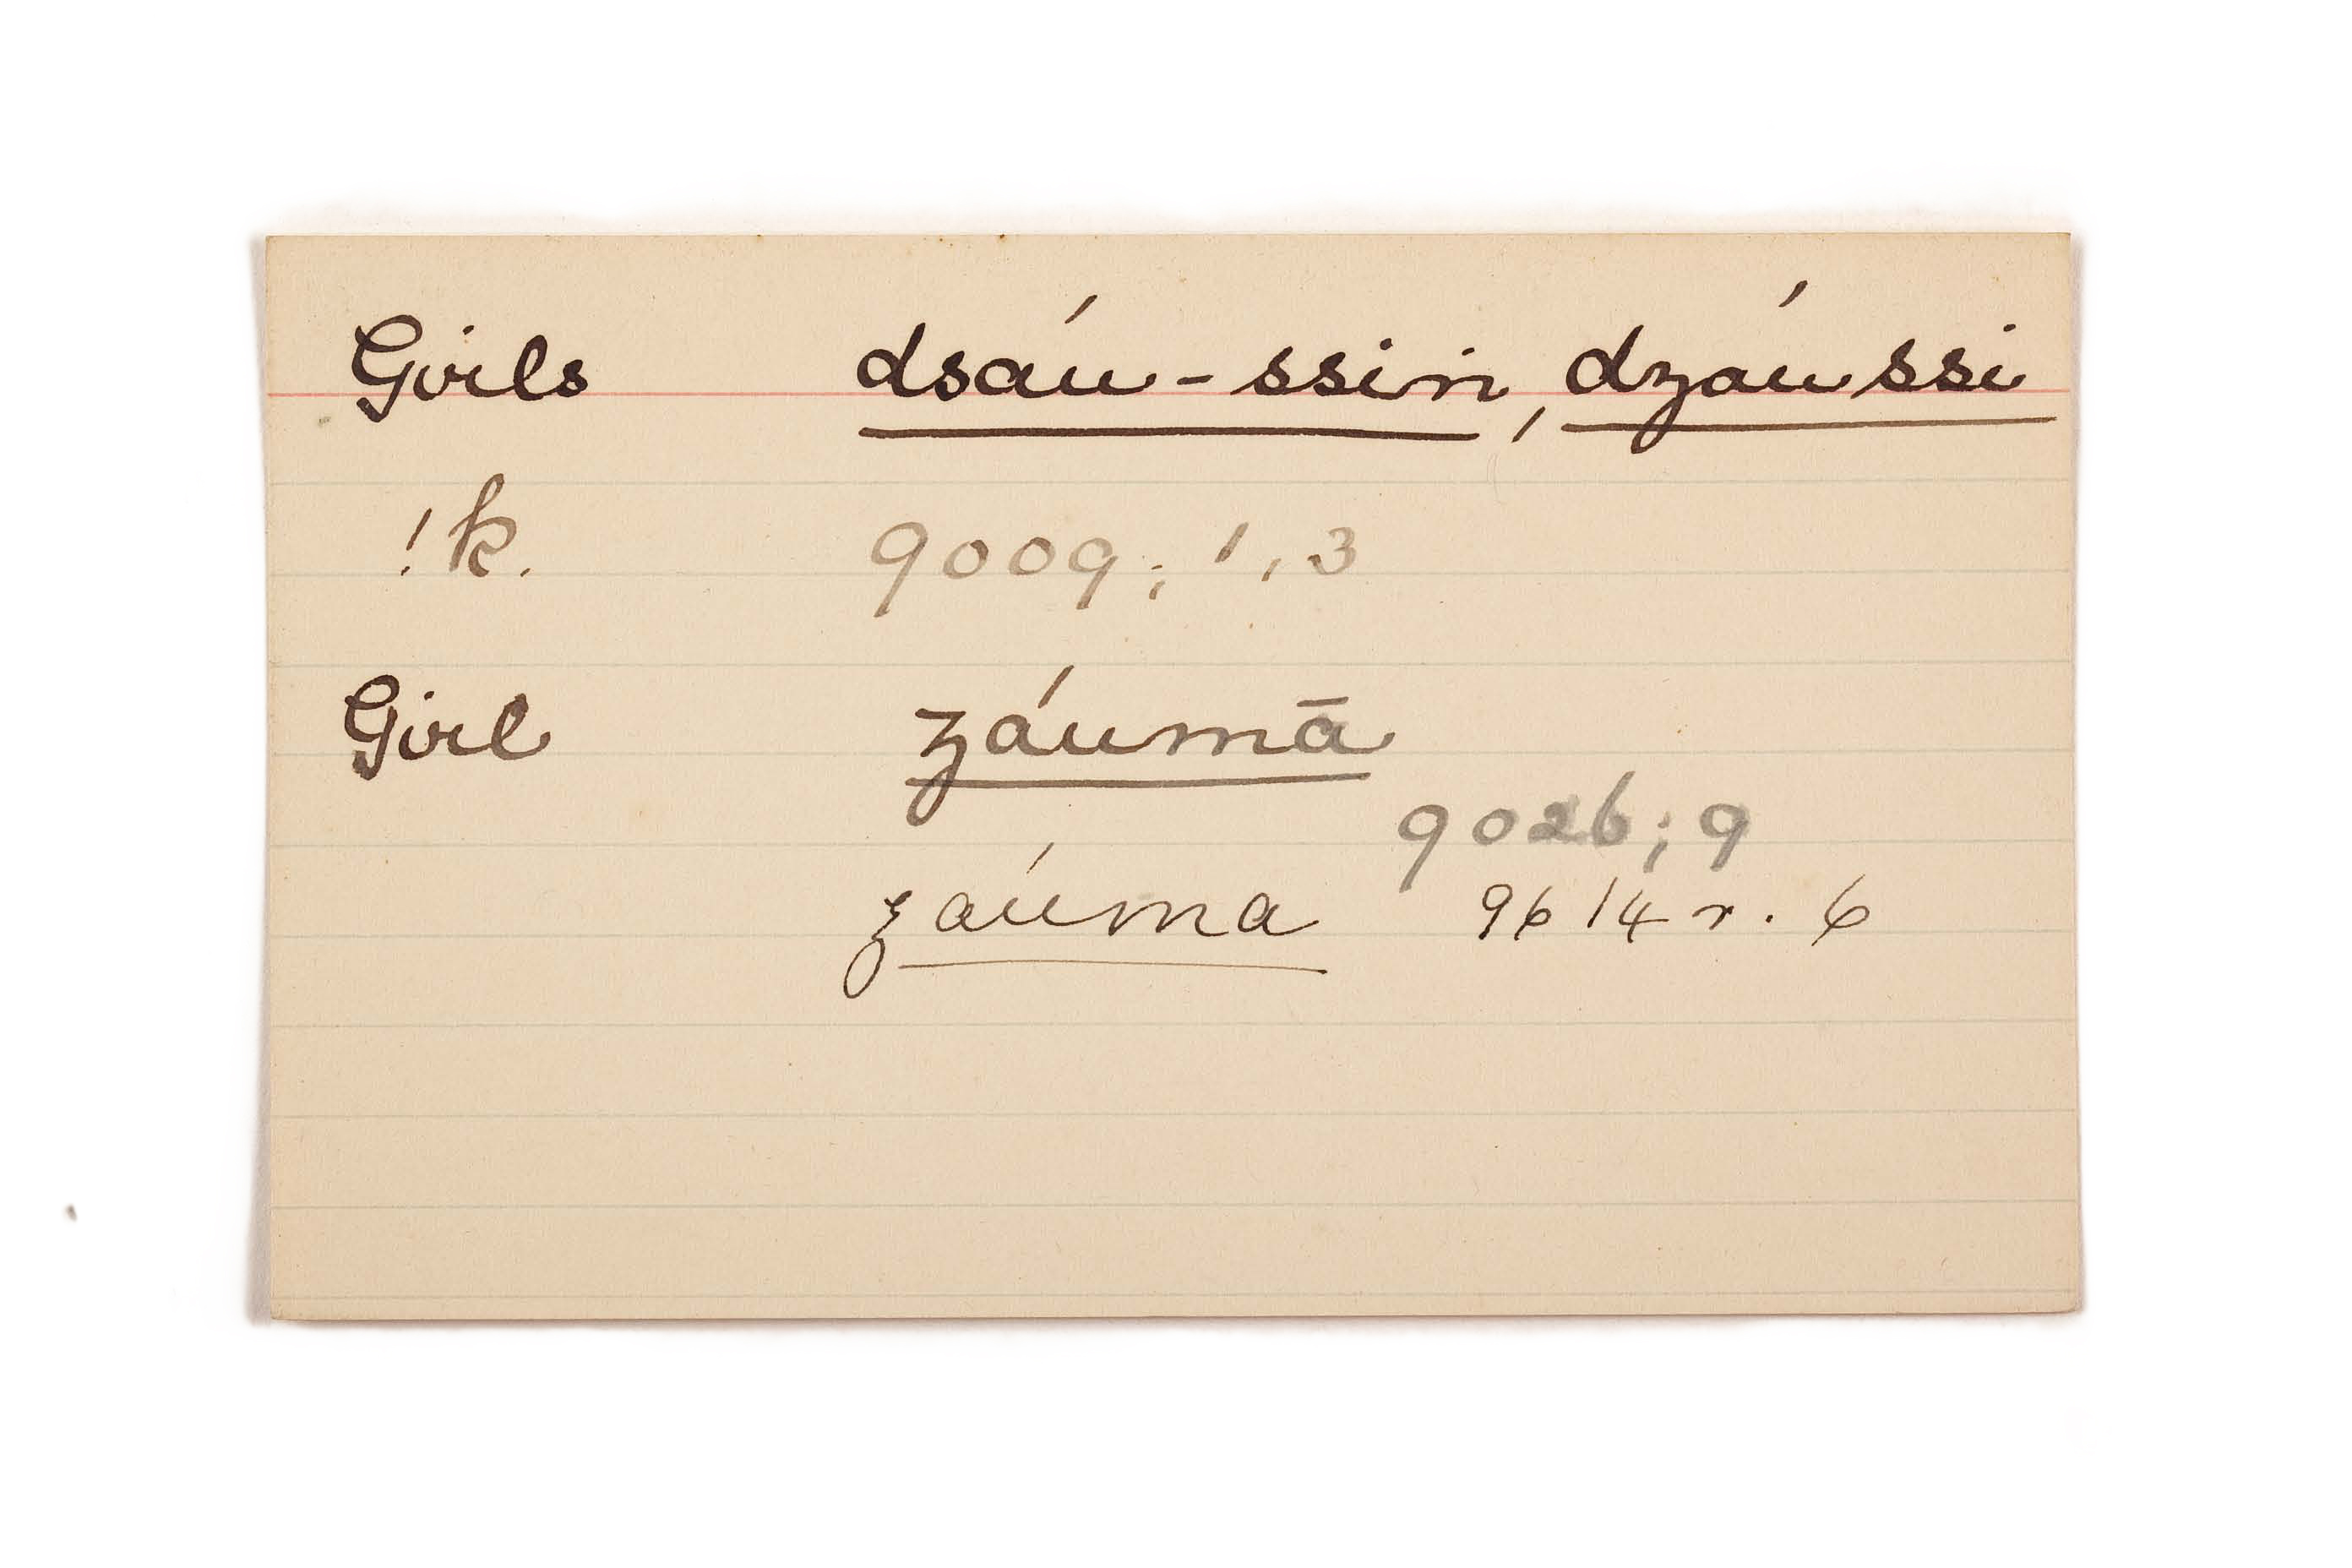 Girls dsáu-ssin, dzáussi
!k. 9009; 1, 3
Girl záumā
9026; 9
záuma 9614 r. 6